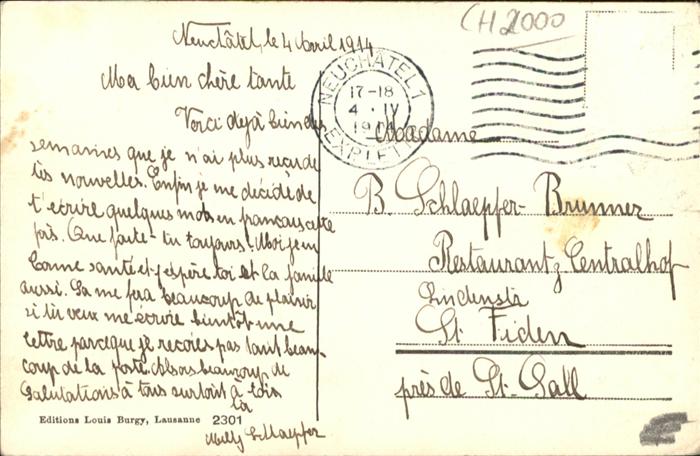 CH 2000
Neuchâtel, le 4 Avril 1914
Ma bien chère tante
Voici dejà bien des
semaines que je n'ai plus recu de
tes nouvelles. Enfin je me décide de
t'écrire quelques mots en francais cette
fois. Que faite-tu toujours? Moi je suis
bonne santé et j'espère toi et la famille
aussi. Sa me fera beaucoup de plaisir
si tu veux me écrire bientôt une
lettre parceque je recoies pas tant beau-
coup de la poste. Alsors beaucoup de
Salutations à tous surtout à toi
ta
Milly Schlaepfer
Editions Louis Burgy, Lausanne 2301
NEUCHÂTEL 1
17-18
4. IV
EXP. LET.
Madame
B. Schlaepfer-Brunner
Restaurant z. Centralhof
Lindenstr
St. Fiden
près de St-Gall